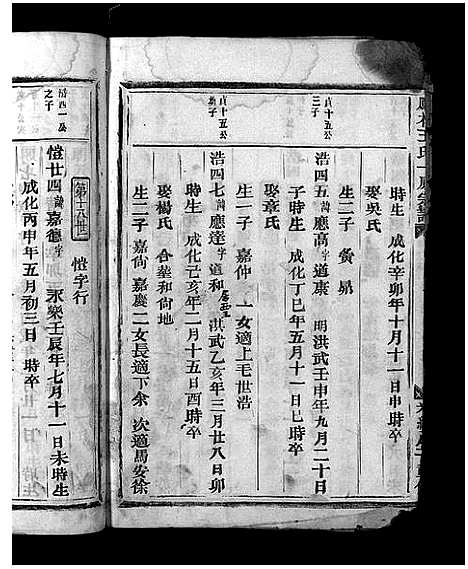 時生 成化辛卯年十月十一日申時卒
娶吳氏
生二子 黌 昴
貞十五公三子
浩四五 諱應高 字道康 明洪武壬申年九月二十日
子時生 成化丁巳年五月十一日時卒
娶章氏
生一子 嘉仲 一女適上毛世浩
貞十五公 子
浩四七 諱應達 字道和 居 洪武乙亥年三月廿八日卯
時生 成化己亥年二月十五日酉時卒
娶楊氏 合塟和尙地
生二子 嘉尙 嘉慶 二女長適下余 次適馬安徐
第十八世 愷字行
浩四一公之子
愷廿四 諱嘉德 字 永樂壬辰年七月十一日未時生
成化丙申年五月初三日 時卒